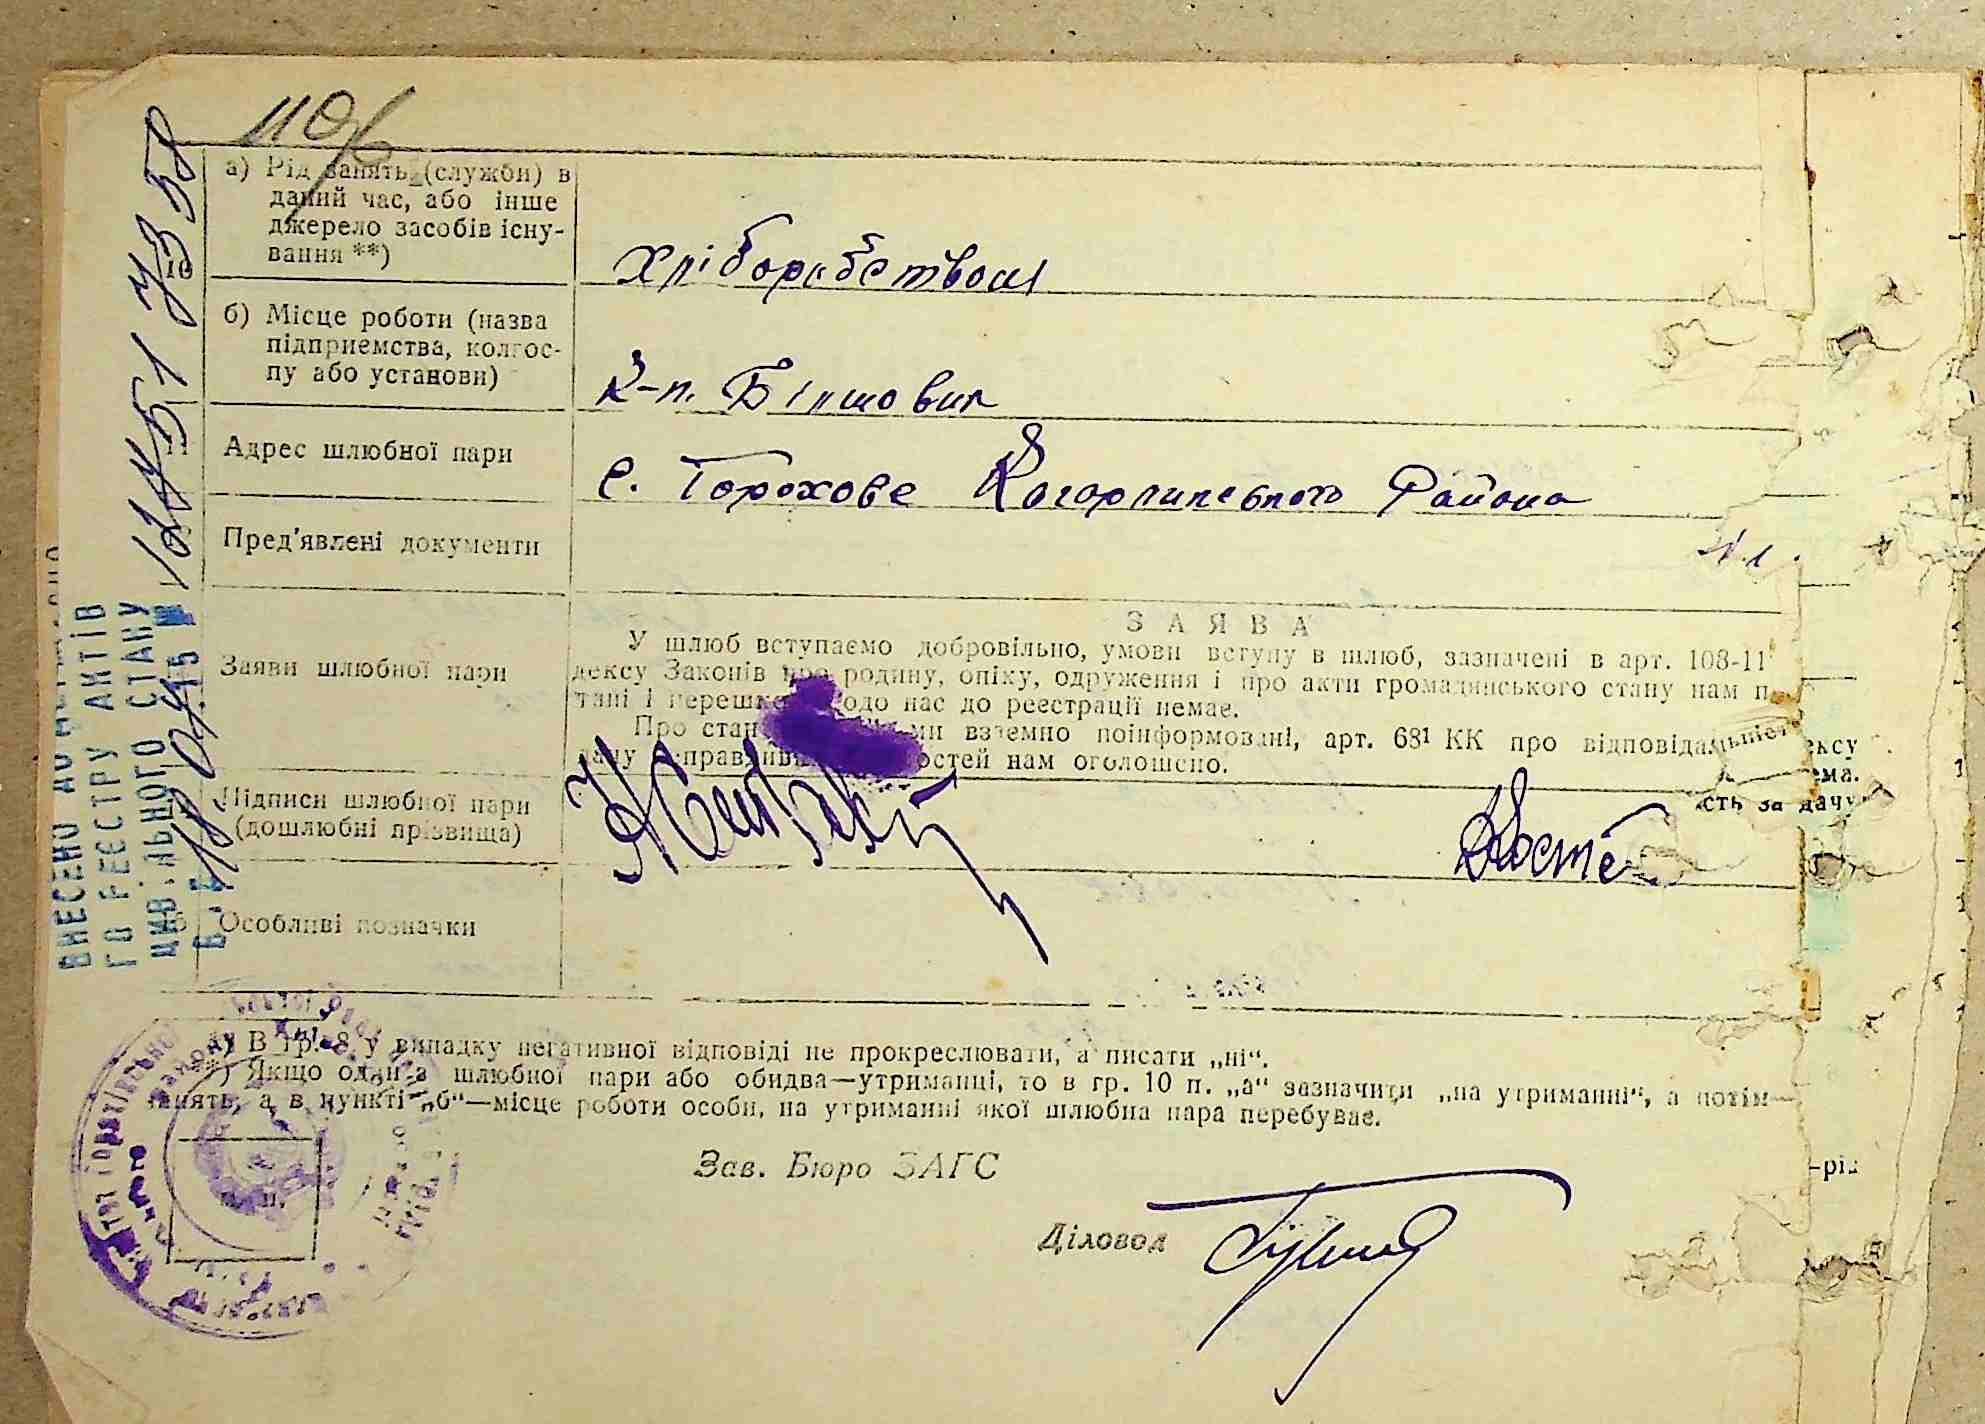 110
а) Рід занять (служби) в
даний час, або інше
джерело засобів існу-
вання **)
10
Хліборобством
б) Місце роботи (назва
підприємства, колгос-
пу або установи)
К-п. Більшовик
11
Адрес шлюбної пари
с. Горохове Кагарлицького Района
Пред'явлені документи
Заяви шлюбної пари
ЗАЯВА
У шлюб вступаємо добровільно, умови вступу в шлюб, зазначені в арт. 108-11
дексу Законів про родину, опіку, одруження і про акти громадянського стану нам
тані і перешкод щодо нас до реєстрації немає.
Про стан ми взаємно поінформовані, арт. 68¹ КК про відповідальність
дачу неправдивих остей нам оголошено.
ексу
ема.
сть за дачу
Підписи шлюбної пари
(дошлюбні прізвища)
Косте
Особливі позначки
*) В гр. 8 у випадку негативної відповіді не прокреслювати, а писати „ні“.
**) Якщо один з шлюбної пари або обидва—утриманці, то в гр. 10 п. „а“ зазначити „на утриманні“, а потім—
занять, а в пункті „б“—місце роботи особи, на утриманні якої шлюбна пара перебуває.
Зав. Бюро ЗАГС
Діловод
м. п.
ВНЕСЕНО ДО ДЕРЖАВНО
ГО РЕЄСТРУ АКТІВ
ЦИВІЛЬНОГО СТАНУ